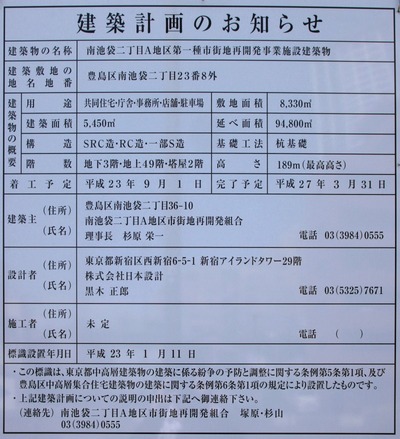 建築計画のお知らせ
建築物の名称 南池袋二丁目A地区第一種市街地再開発事業施設建築物
建築敷地の地名地番 豊島区南池袋二丁目23番8外
建築物の概要
用途 共同住宅・庁舎・事務所・店舗・駐車場 敷地面積 8,330㎡
建築面積 5,450㎡ 延べ面積 94,800㎡
構造 SRC造・RC造・一部S造 基礎工法 杭基礎
階数 地下3階・地上49階・塔屋2階 高さ 189m(最高高さ)
着工予定 平成23年9月1日 完了予定 平成27年3月31日
建築主 (住所) 豊島区南池袋二丁目36-10
南池袋二丁目A地区市街地再開発組合
(氏名) 理事長 杉原 栄一 電話 03(3984)0555
設計者 (住所) 東京都新宿区西新宿6-5-1 新宿アイランドタワー29階
株式会社日本設計
(氏名) 黒木 正郎 電話 03(5325)7671
施工者 (住所) 未定
(氏名) 電話 ( )
標識設置年月日 平成23年1月11日
・この標識は、東京都中高層建築物の建築に係る紛争の予防と調整に関する条例第5条第1項、及び
豊島区中高層集合住宅建築物の建築に関する条例第6条第1項の規定により設置したものです。
・上記建築計画についての説明の申出は下記へご連絡下さい。
(連絡先) 南池袋二丁目A地区市街地再開発組合 塚原・杉山
03(3984)0555